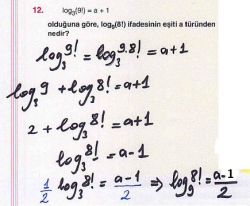 12. log₃(9!) = a + 1
olduğuna göre, log₉(8!) ifadesinin eşiti a türünden
nedir?
log₃9! = log₃9.8! = a+1
log₃9 + log₃8! = a+1
2 + log₃8! = a+1
log₃8! = a-1
1/2 log₃8! = (a-1)/2 ⇒ log₉8! = (a-1)/2